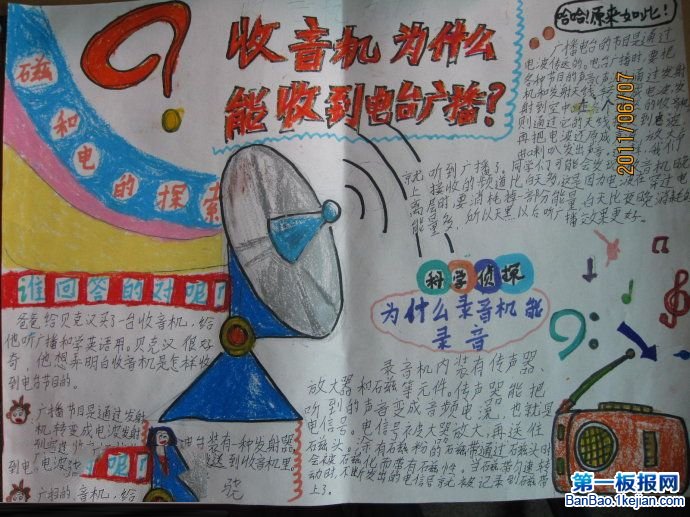 收音机为什么
能收到电台广播?
磁和电的探索
哈哈!原来如此!
广播电台的节目是通过
电波传送的。电台广播时,要把
各种节目的声音
机和发射天线
发射到空中
则通过它的天线
再把电波还原成
由喇叭发出声音
就听到广播了。同学们可能会发现,收音机晚
上接收的频道比白天多,这是因为电波在穿过电
离层时要消耗掉一部分能量,白天比夜晚消耗的
能量多,所以天黑以后听广播效果更好。
2011/06/07
谁回答的对呢?
爸爸给贝克汉买了一台收音机,给
他听广播和学英语用。贝克汉很好
奇,他想弄明白收音机是怎样收
到电台节目的。
广播节目是通过发射
机转变成电波发射
到
电台装有一种发射器
送到收音机里
科学侦探
为什么录音机能
录音
录音机内装有传声器、
放大器和石磁等元件。传声器能把
听到的声音变成音频电流,也就是
电信号。电信号被放大器放大,再送往
石磁头。涂有石磁粉的石磁带通过石磁头时
会被石磁化而带有石磁性。当石磁带匀速转
动时,不断发出的电信号就被记录到石磁带
上了。
第一板报网
BanBao.1kejian.com